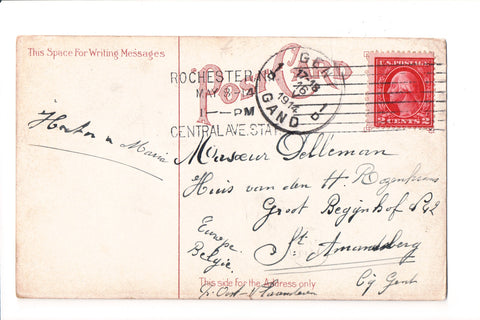 This Space For Writing Messages
POST CARD
ROCHESTER, N.Y.
MAY 14
-PM
CENTRAL AVE. STA.
GENT
17-18
16
1914
GAND
U.S. POSTAGE
2 CENTS 2
Maria
Monsieur Selleman
Huis van den H.
Groot Begijnhof
St. Amandsberg
Bij Gent
Europe
Belgie.
This side for the Address only
Oost-Vlaanderen